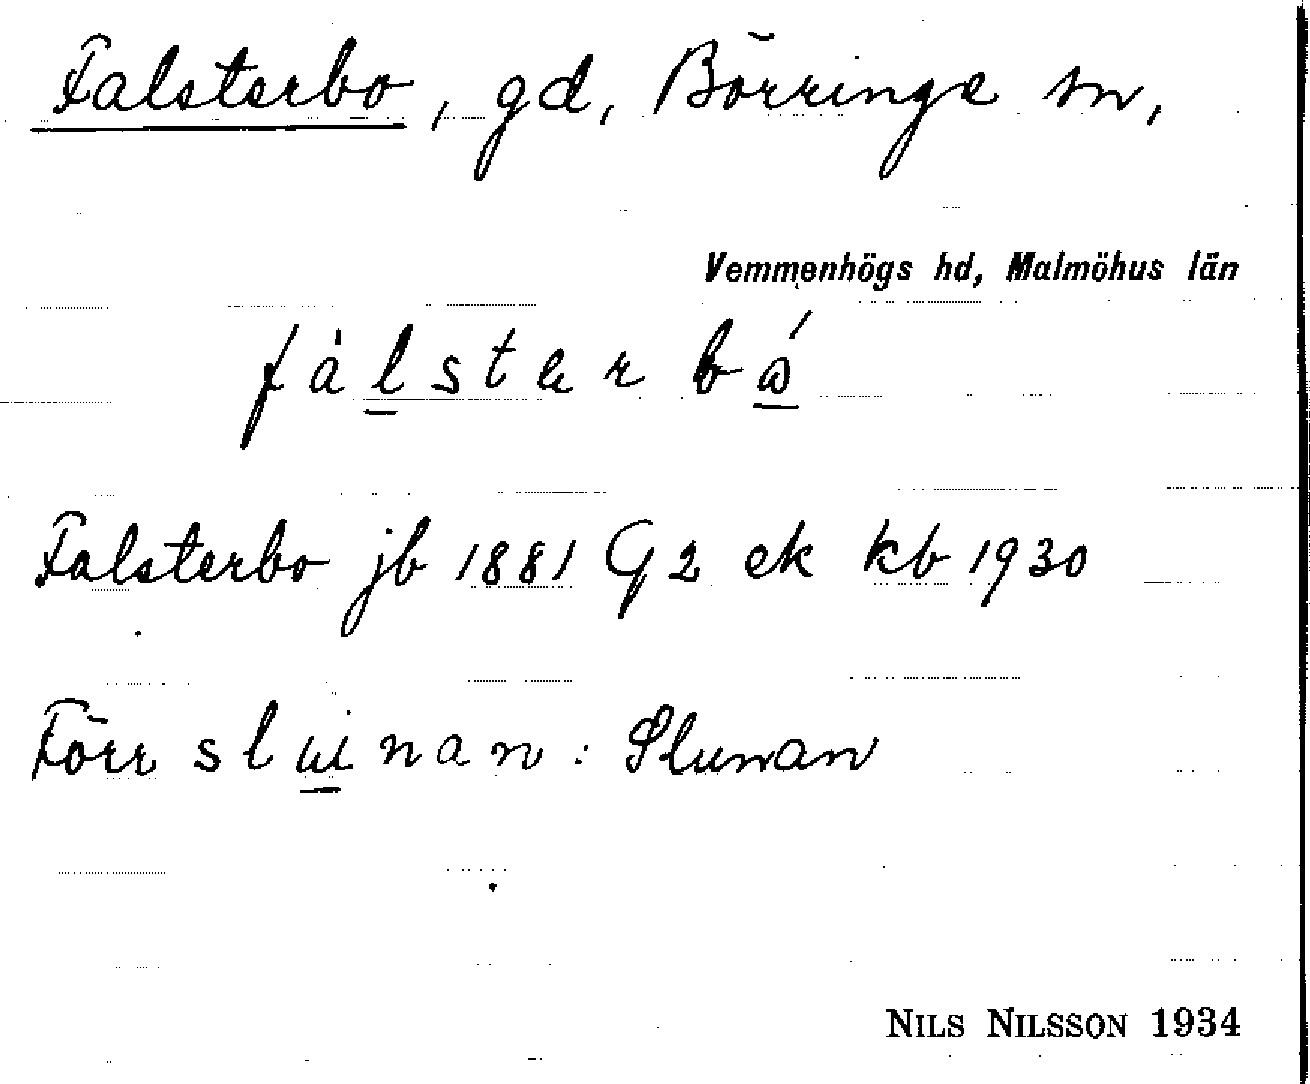 Falsterbo, gd, Börringe sn,
Vemmenhögs hd, Malmöhus län
fàlsterbó
Falsterbo jb 1881 G2 ek kb 1930
Förr slunan: Slunan
NILS NILSSON 1934